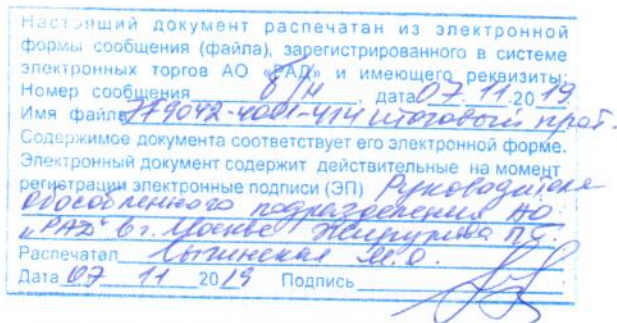 Настоящий документ распечатан из электронной
формы сообщения (файла), зарегистрированного в системе
электронных торгов АО «РАД» и имеющего реквизиты:
Номер сообщения б/н , дата 07 . 11 .20 19.
Имя файла итоговый прот.
Содержимое документа соответствует его электронной форме.
Электронный документ содержит действительные на момент
регистрации электронные подписи (ЭП) Руководителя
обособленного подразделения АО
„РАД" в г. Москве
Распечатал М.О.
Дата 07 11 20 19 Подпись